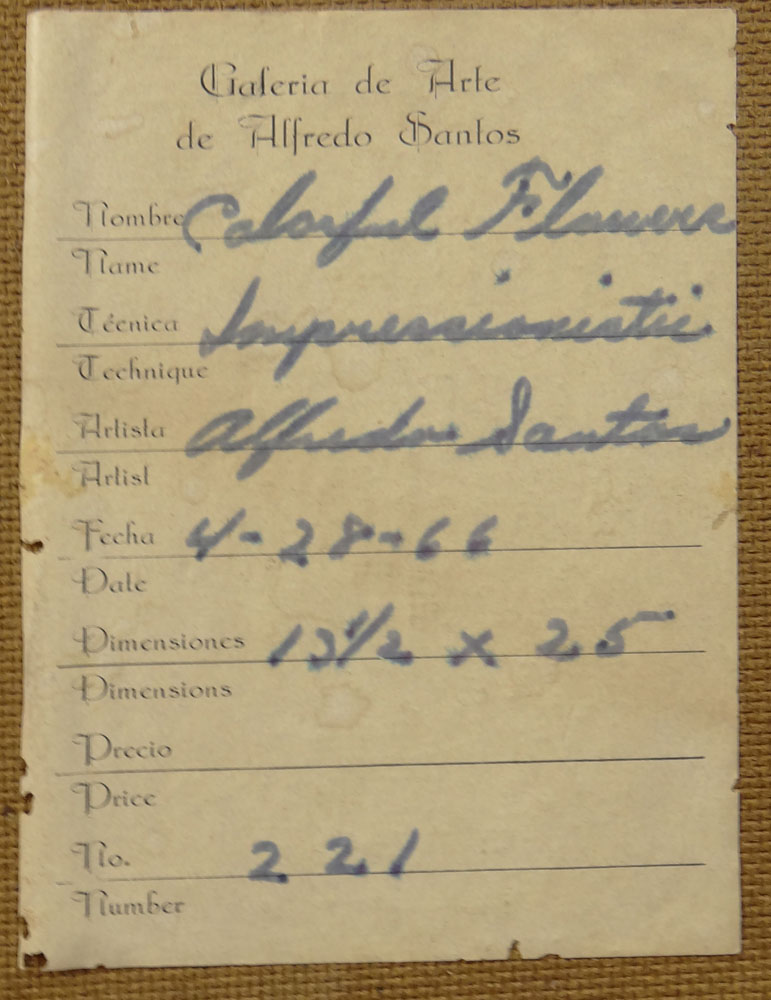 Galeria de Arte
de Alfredo Santos
Nombre Colorful Flowers
Name
Técnica Impressionistic
Technique
Artista Alfredo Santos
Artist
Fecha 4-28-66
Date
Dimensiones 13 1/2 x 25
Dimensions
Precio
Price
No. 221
Number